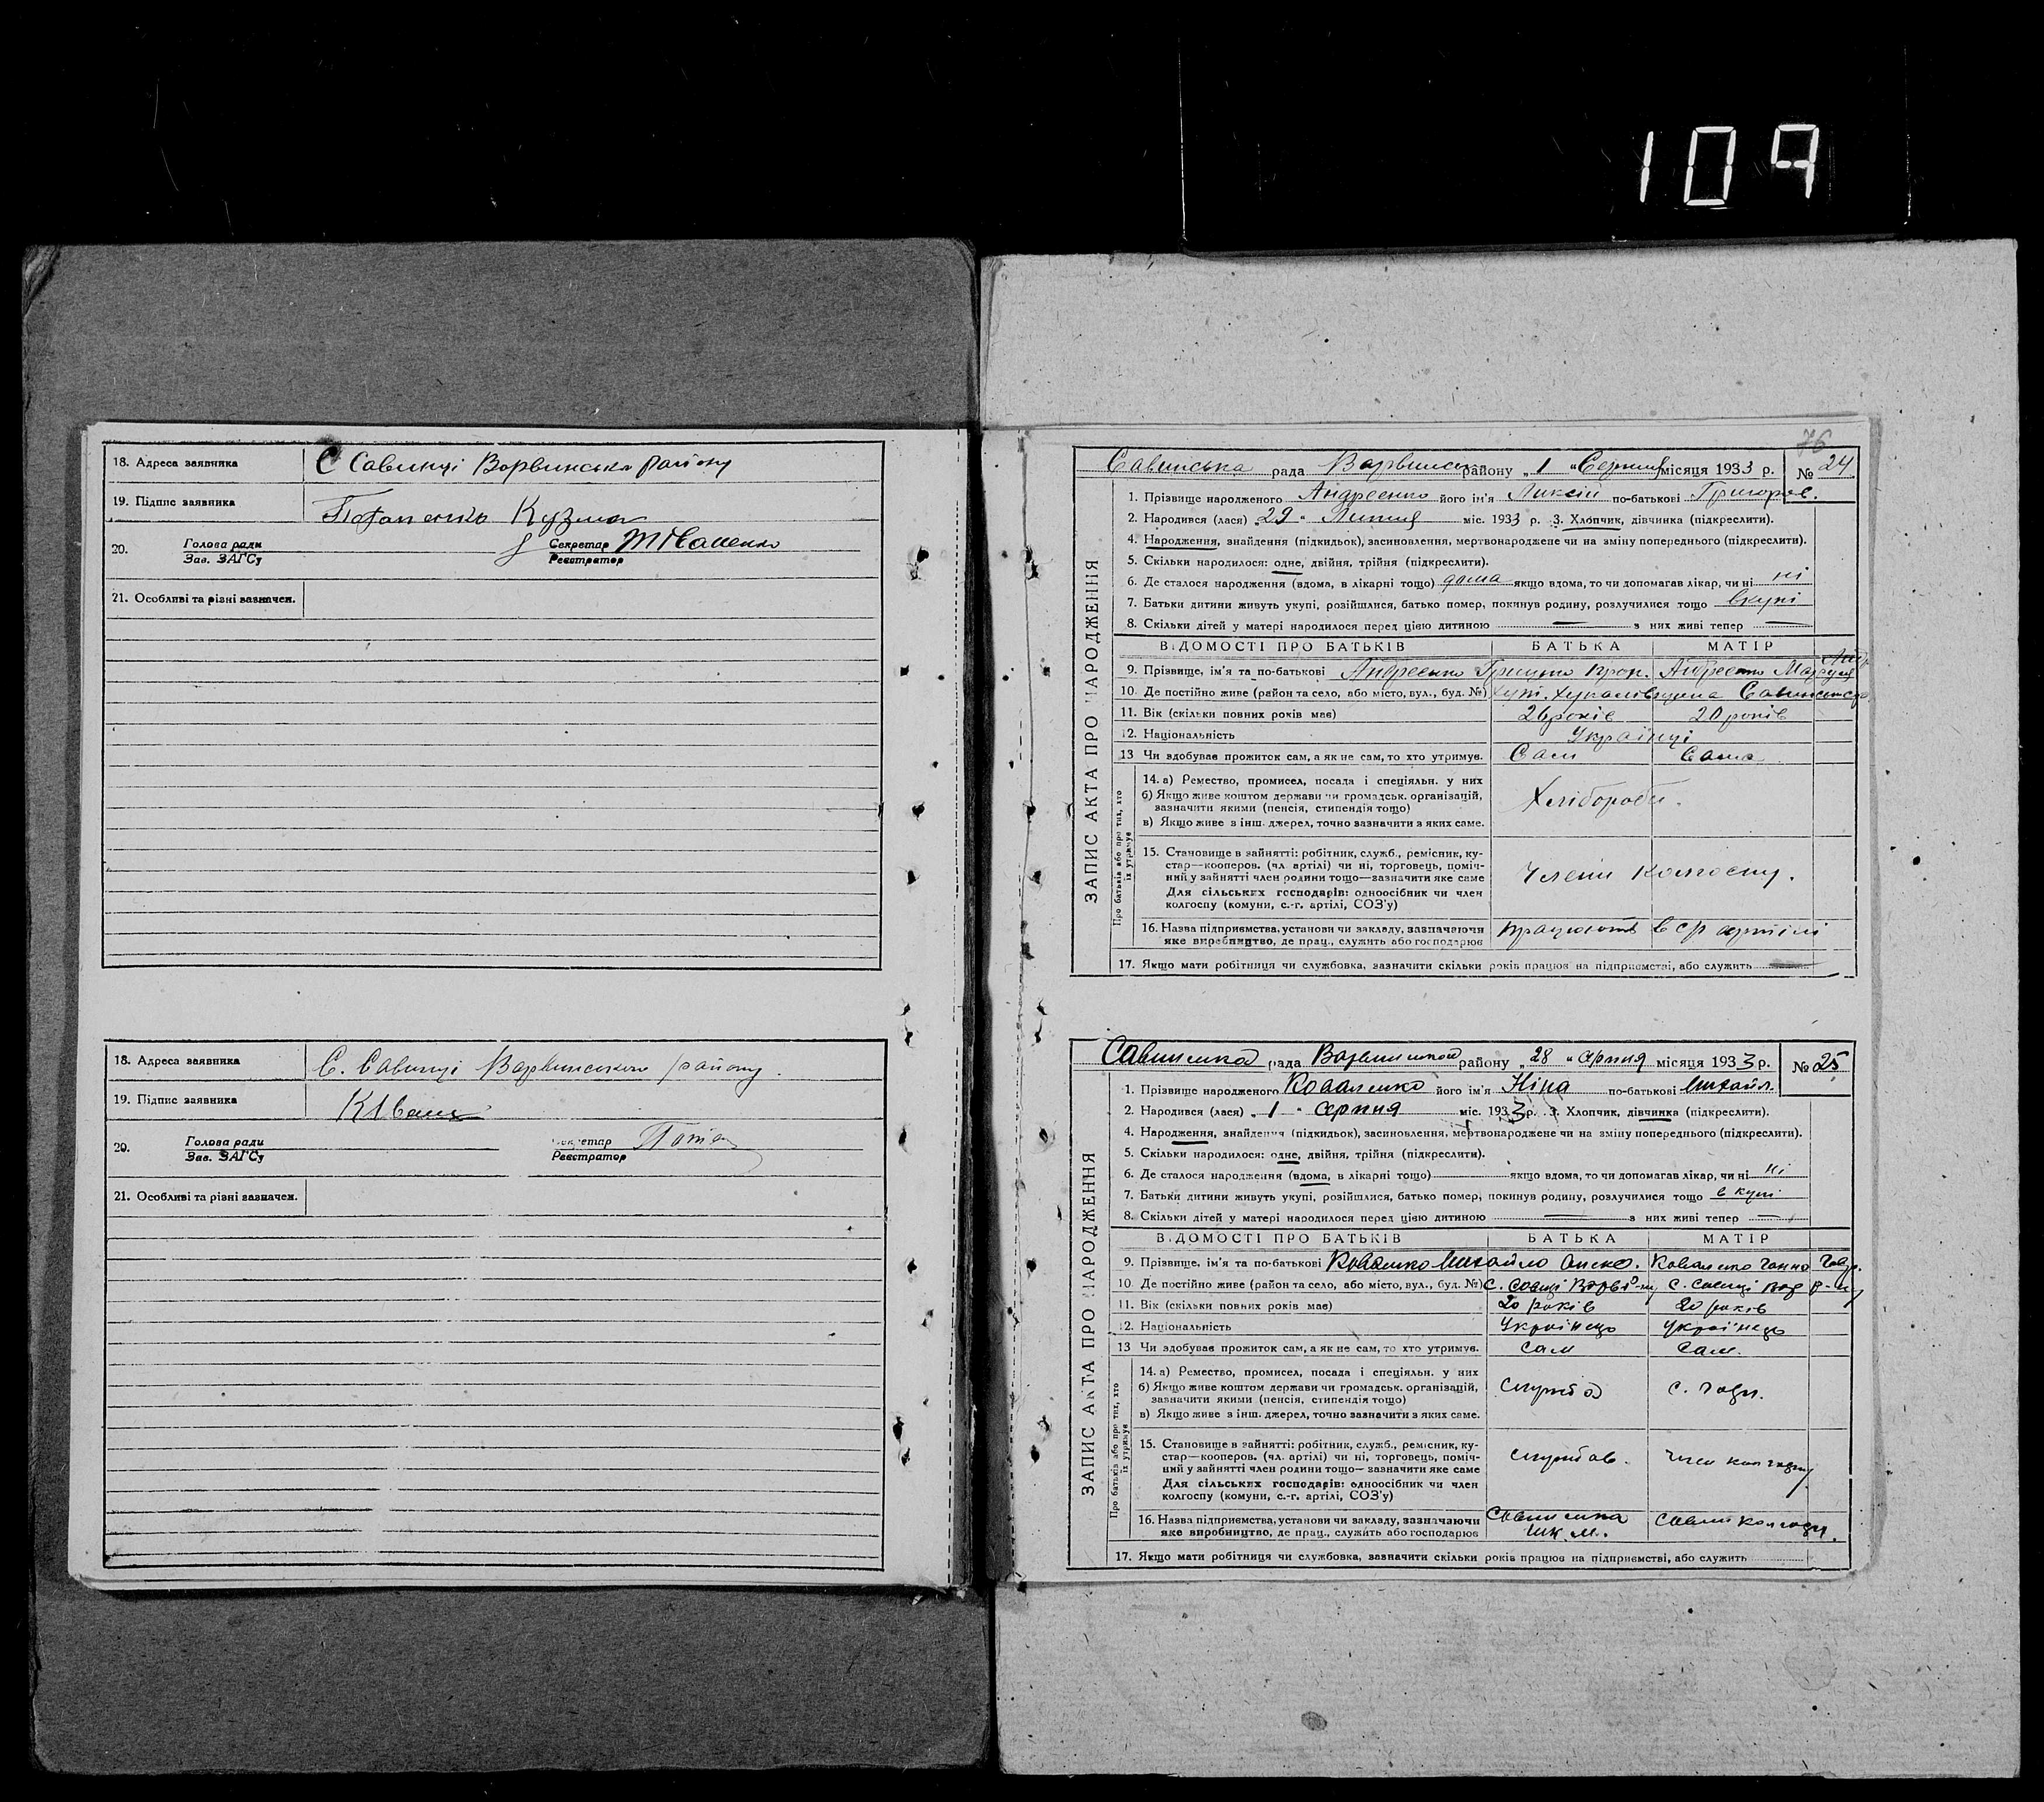 109
18. Адреса заявника С Савинці Варвинська району
19. Підпис заявника Потапенко Кузма
20. Голова ради Зав. ЗАГСу Секретар Реєстратор
21. Особливі та різні зазначен.
18. Адреса заявника С. Савинці Варвинського району.
19. Підпис заявника
20. Голова ради Зав. ЗАГСу Секретар Реєстратор
21. Особливі та різні зазначен.
76
Савинська рада Варвинськ району „ 1 " Серпня місяця 1933 р. № 24
ЗАПИС АКТА ПРО НАРОДЖЕННЯ
1. Прізвище народженого Андреенко його ім'я Ликсій по-батькові Григоров.
2. Народився (лася) 29 " Липня міс. 1933 р. 3. Хлопчик, дівчинка (підкреслити).
4. Народження, знайдення (підкидьок), засиновлення, мертвонароджене чи на зміну попереднього (підкреслити).
5. Скільки народилося: одне, двійня, трійня (підкреслити).
6. Де сталося народження (вдома, в лікарні тощо) дома якщо вдома, то чи допомагав лікар, чи ні ні
7. Батьки дитини живуть укупі, розійшлися, батько помер, покинув родину, розлучилися тощо вкупі
8. Скільки дітей у матері народилося перед цією дитиною — з них живі тепер —
ВІДОМОСТІ ПРО БАТЬКІВ БАТЬКА МАТІР
9. Прізвище, ім'я та по-батькові Андреенко Грицько Андреенко
10. Де постійно живе (район та село, або місто, вул., буд. №)
11. Вік (скільки повних років має) 26 років 20 років
12. Національність Українці
13 Чи здобуває прожиток сам, а як не сам, то хто утримує. Сам Сама
Про батьків або про тих, хто їх утримує
14. а) Ремество, промисел, посада і спеціяльн. у них
б) Якщо живе коштом держави чи громадськ. організацій,
зазначити якими (пенсія, стипендія тощо) Хлібороби.
в) Якщо живе з інш. джерел, точно зазначити з яких саме.
15. Становище в зайнятті: робітник, служб., ремісник, ку-
стар—кооперов. (чл. артілі) чи ні, торговець, поміч-
ний у зайнятті член родини тощо—зазначити яке саме Члени колгоспу.
Для сільських господарів: одноосібник чи член
колгоспу (комуни, с.-г. артілі, СОЗ'у)
16. Назва підприємства, установи чи закладу, зазначаючи працюють в с/г артілі
яке виробництво, де прац., служить або господарює
17. Якщо мати робітниця чи службовка, зазначити скільки років працює на підприємстві, або служить
рада району „ 28 " серпня місяця 1933 р. № 25
ЗАПИС АКТА ПРО НАРОДЖЕННЯ
1. Прізвище народженого Коваленко його ім'я Ніна по-батькові Михайл.
2. Народився (лася) „ 1 " серпня міс. 1933 р. 3. Хлопчик, дівчинка (підкреслити).
4. Народження, знайдення (підкидьок), засиновлення, мертвонароджене чи на зміну попереднього (підкреслити).
5. Скільки народилося: одне, двійня, трійня (підкреслити).
6. Де сталося народження (вдома, в лікарні тощо) якщо вдома, то чи допомагав лікар, чи ні ні
7. Батьки дитини живуть укупі, розійшлися, батько помер, покинув родину, розлучилися тощо в купі
8. Скільки дітей у матері народилося перед цією дитиною — з них живі тепер —
ВІДОМОСТІ ПРО БАТЬКІВ БАТЬКА МАТІР
9. Прізвище, ім'я та по-батькові Коваленко Михайло Коваленко Ганна
10. Де постійно живе (район та село, або місто, вул., буд. №)
11. Вік (скільки повних років має) 20 років 20 років
12. Національність Українець Українець
13 Чи здобуває прожиток сам, а як не сам, то хто утримує. сам сам.
Про батьків або про тих, хто їх утримує
14. а) Ремество, промисел, посада і спеціяльн. у них
б) Якщо живе коштом держави чи громадськ. організацій,
зазначити якими (пенсія, стипендія тощо)
в) Якщо живе з інш. джерел, точно зазначити з яких саме.
15. Становище в зайнятті: робітник, служб., ремісник, ку-
стар—кооперов. (чл. артілі) чи ні, торговець, поміч-
ний у зайнятті член родини тощо—зазначити яке саме
Для сільських господарів: одноосібник чи член
колгоспу (комуни, с.-г. артілі, СОЗ'у)
16. Назва підприємства, установи чи закладу, зазначаючи
яке виробництво, де прац., служить або господарює
17. Якщо мати робітниця чи службовка, зазначити скільки років працює на підприємстві, або служить